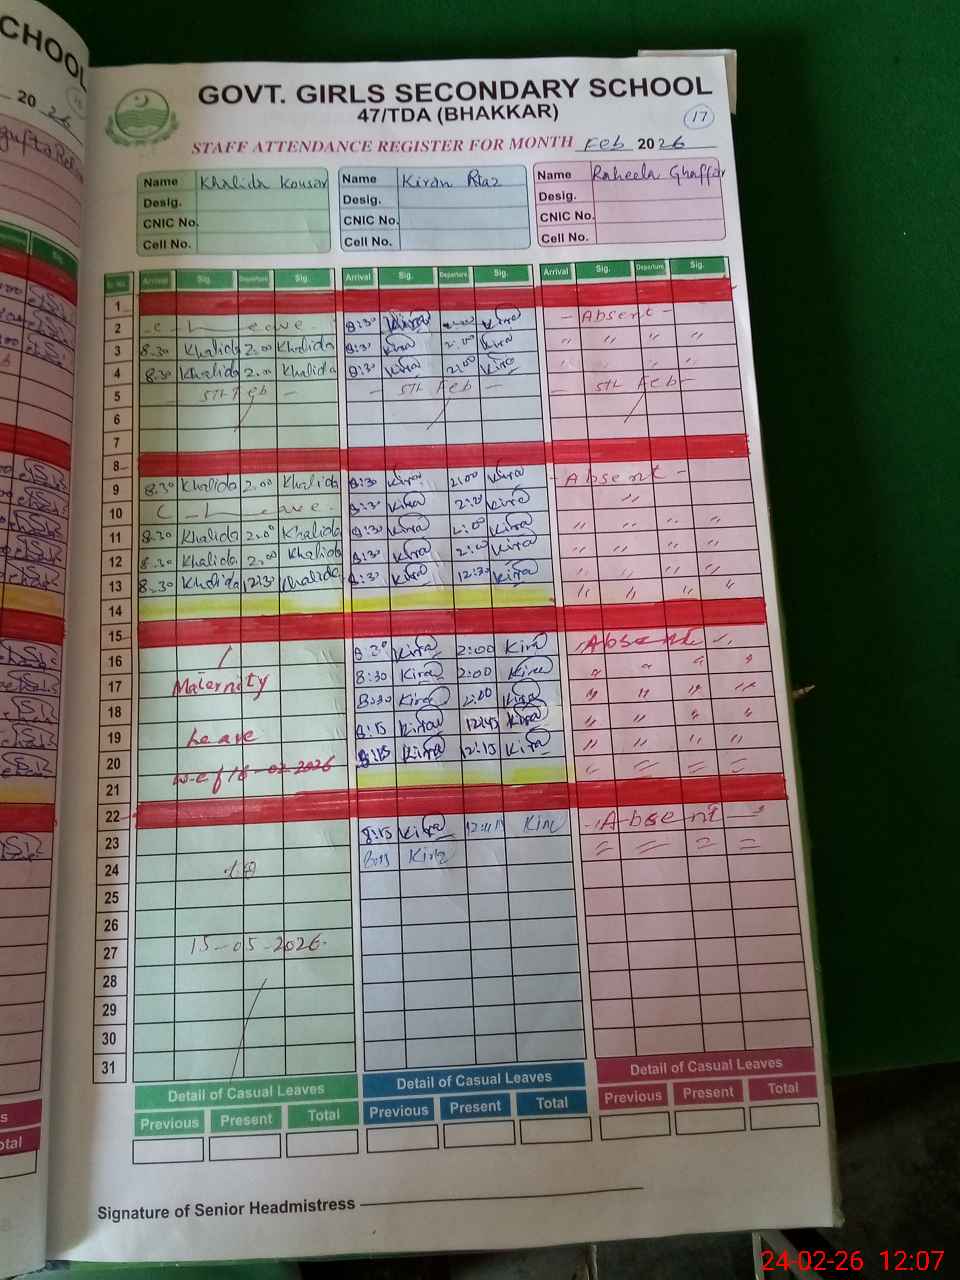 CHOOL
20 26
GOVT. GIRLS SECONDARY SCHOOL
47/TDA (BHAKKAR)
17
STAFF ATTENDANCE REGISTER FOR MONTH Feb 2026
Name Khalida Kousar Name Kiran Riaz Name Raheela Ghaffar
Desig. Desig. Desig.
CNIC No. CNIC No. CNIC No.
Cell No. Cell No. Cell No.
Sr. No. Arrival Sig. Departure Sig. Arrival Sig. Departure Sig. Arrival Sig. Departure Sig.
1
2 C - Leave - 8:30 Kiran 2:00 Kiran - Absent -
3 8.30 Khalida 2.00 Khalida 8:30 Kiran 2:00 Kiran " " " "
4 8.30 Khalida 2.00 Khalida 8:30 Kiran 2:00 Kiran " " " "
5 - 5th Feb - - 5th Feb - - 5th Feb -
6
7
8
9 8.30 Khalida 2.00 Khalida 8:30 Kiran 2:00 Kiran - Absent -
10 C - Leave - 8:30 Kiran 2:00 Kiran "
11 8.30 Khalida 2.00 Khalida 8:30 Kiran 2:00 Kiran " " " "
12 8.30 Khalida 2.00 Khalida 8:30 Kiran 2:00 Kiran " " " "
13 8.30 Khalida 12:30 Khalida 8:30 Kiran 12:30 Kiran " " " "
14
15
16 8:30 Kiran 2:00 Kiran Absent
17 Maternity 8:30 Kiran 2:00 Kiran " " " "
18 8:30 Kiran 2:00 Kiran " " " "
19 Leave 8:15 Kiran 12:45 Kiran " " " "
20 w.e.f 16-02-2026 8:15 Kiran 12:15 Kiran " " " "
21
22
23 8:15 Kiran Kiran - Absent -
24 to 8:15 Kiran " " " "
25
26
27 15-05-2026.
28
29
30
31
Detail of Casual Leaves Detail of Casual Leaves Detail of Casual Leaves
Previous Present Total Previous Present Total Previous Present Total
Signature of Senior Headmistress
24-02-26 12:07